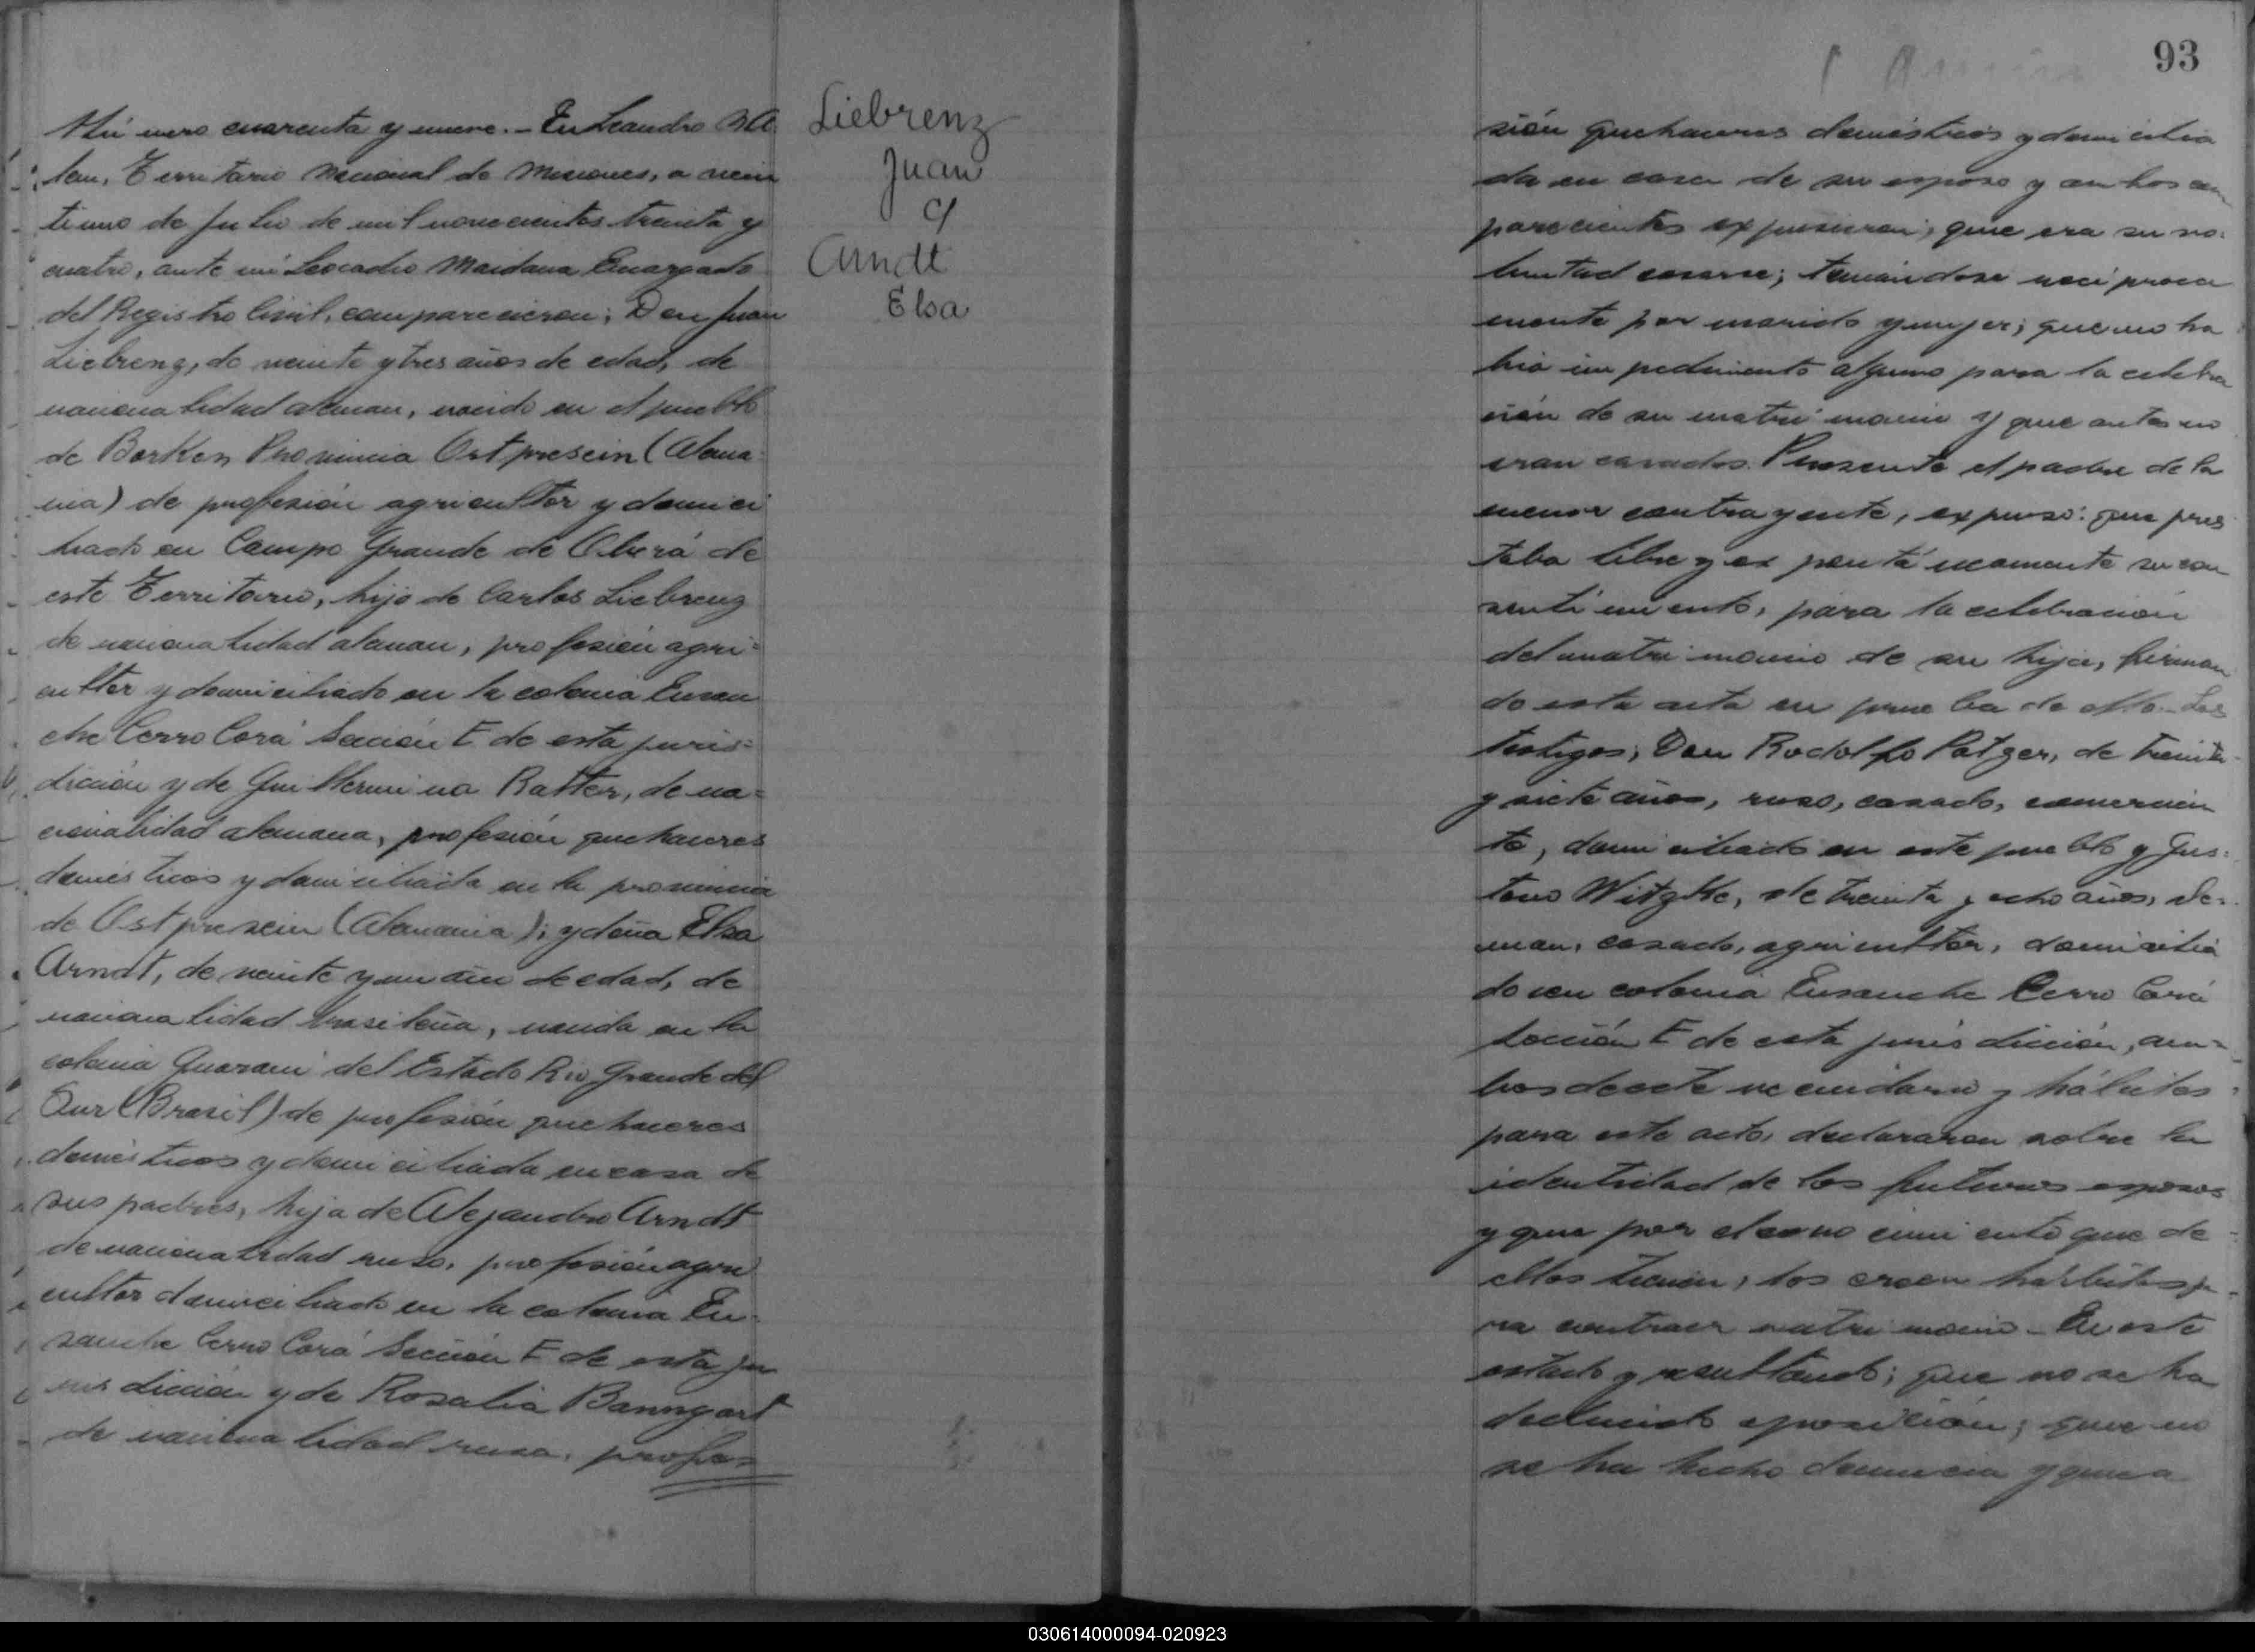 Número cuarenta y nueve.- En Leandro N. A
lem, Territorio Nacional de Misiones, a vein
tiuno de Julio de mil novecientos treinta y
cuatro, ante mí Leocadio Maidana Encargado
del Registro Civil, comparecieron: Don Juan
Liebrenz, de veinte y tres años de edad, de
nacionalidad aleman, nacido en el pueblo
de Borken Provincia Ostpresein (Alema-
nia) de profesión agricultor y domici
liado en Campo Grande de Oberá de
este Territorio, hijo de Carlos Liebrenz
de nacionalidad aleman, profesión agri-
cultor y domiciliado en la colonia Ensan
che Cerro Corá Sección E de esta juris-
dicción y de Guillermina Ratter, de na-
cionalidad alemana, profesión quehaceres
domésticos y domiciliada en la provincia
de Ostpresein (Alemania); y doña Elsa
Arndt, de veinte y un año de edad, de
nacionalidad brasileña, nacida en la
colonia Guaraní del Estado Rio Grande del
Sur (Brasil) de profesión quehaceres
domésticos y domiciliada en casa de
sus padres, hija de Alejandro Arndt
de nacionalidad ruso, profesión agri
cultor domiciliado en la colonia En-
sanche Cerro Corá Sección E de esta ju
risdicción y de Rosalia Banngart
de nacionalidad rusa, profe-
Liebrenz
Juan
y
Arndt
Elsa
93
sión quehaceres domésticos y domicilia
da en casa de su esposo y ambos com
parecientes expusieron; que era su vo-
luntad casarse; tomándose recíproca
mente por marido y mujer; que no ha
bía impedimento alguno para la celebra
ción de su matrimonio y que antes no
eran casados. Presente el padre de la
menor contrayente, expuso: que pres
taba libre y espontáneamente su con
sentimiento, para la celebración
del matrimonio de su hija, firman
do esta acta en prueba de ello.- Los
testigos; Don Rodolfo Patzer, de treinta
y siete años, ruso, casado, comercian
te, domiciliado en este pueblo y Gus-
tavo Witzke, de treinta y ocho años, ale-
man, casado, agricultor, domicilia
do en colonia Ensanche Cerro Corá
Sección E de esta jurisdicción, am-
bos de este vecindario y hábiles
para este acto, declararon sobre la
identidad de los futuros esposos
y que por el conocimiento que de
ellos tienen, los creen hábiles pa-
ra contraer matrimonio - En este
estado y resultando; que no se ha
deducido oposición; que no
se ha hecho denuncia y que a
030614000094-020923